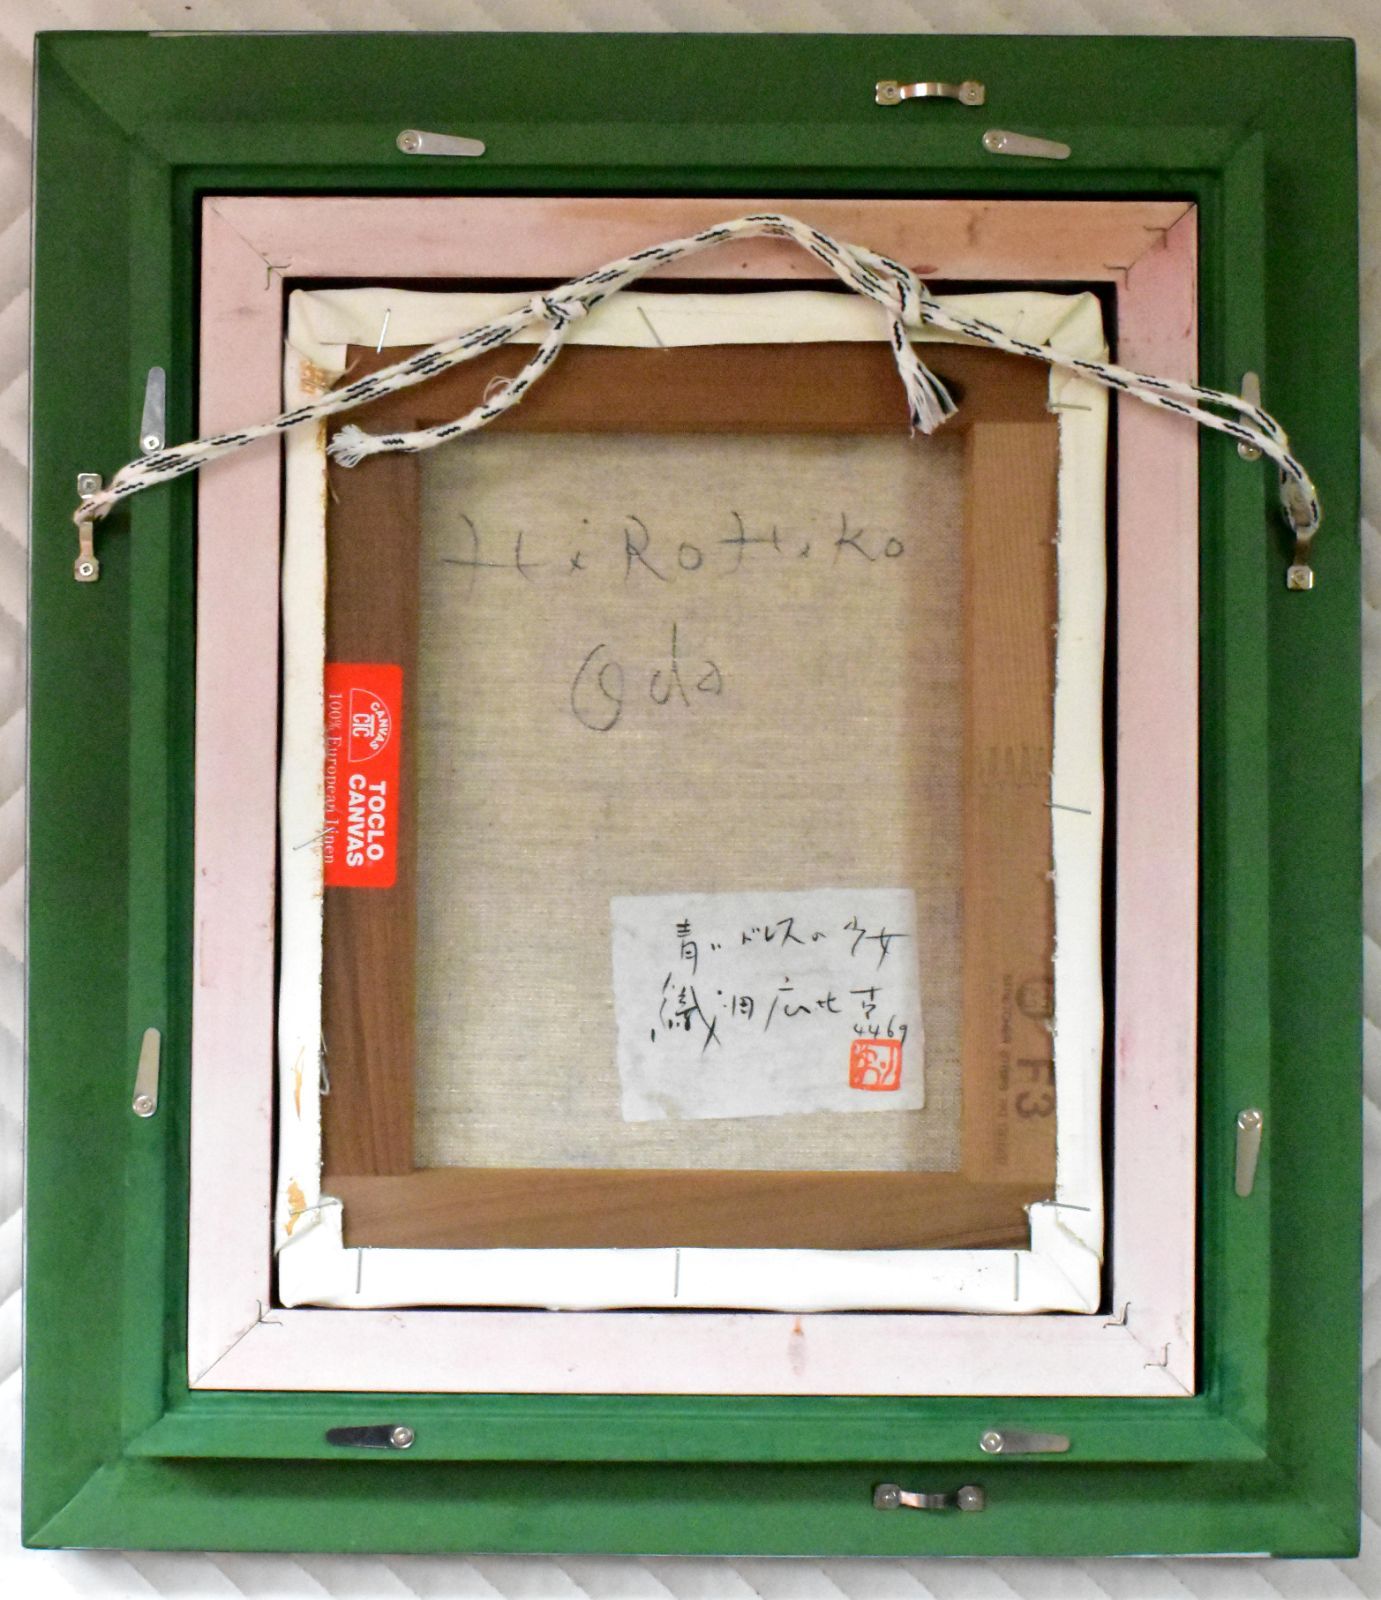 HiRoHiko
Oda
CANVAS
CTC
TOCLO
CANVAS
100% European linen
青いドレスの少女
織田広比古
4469
F3